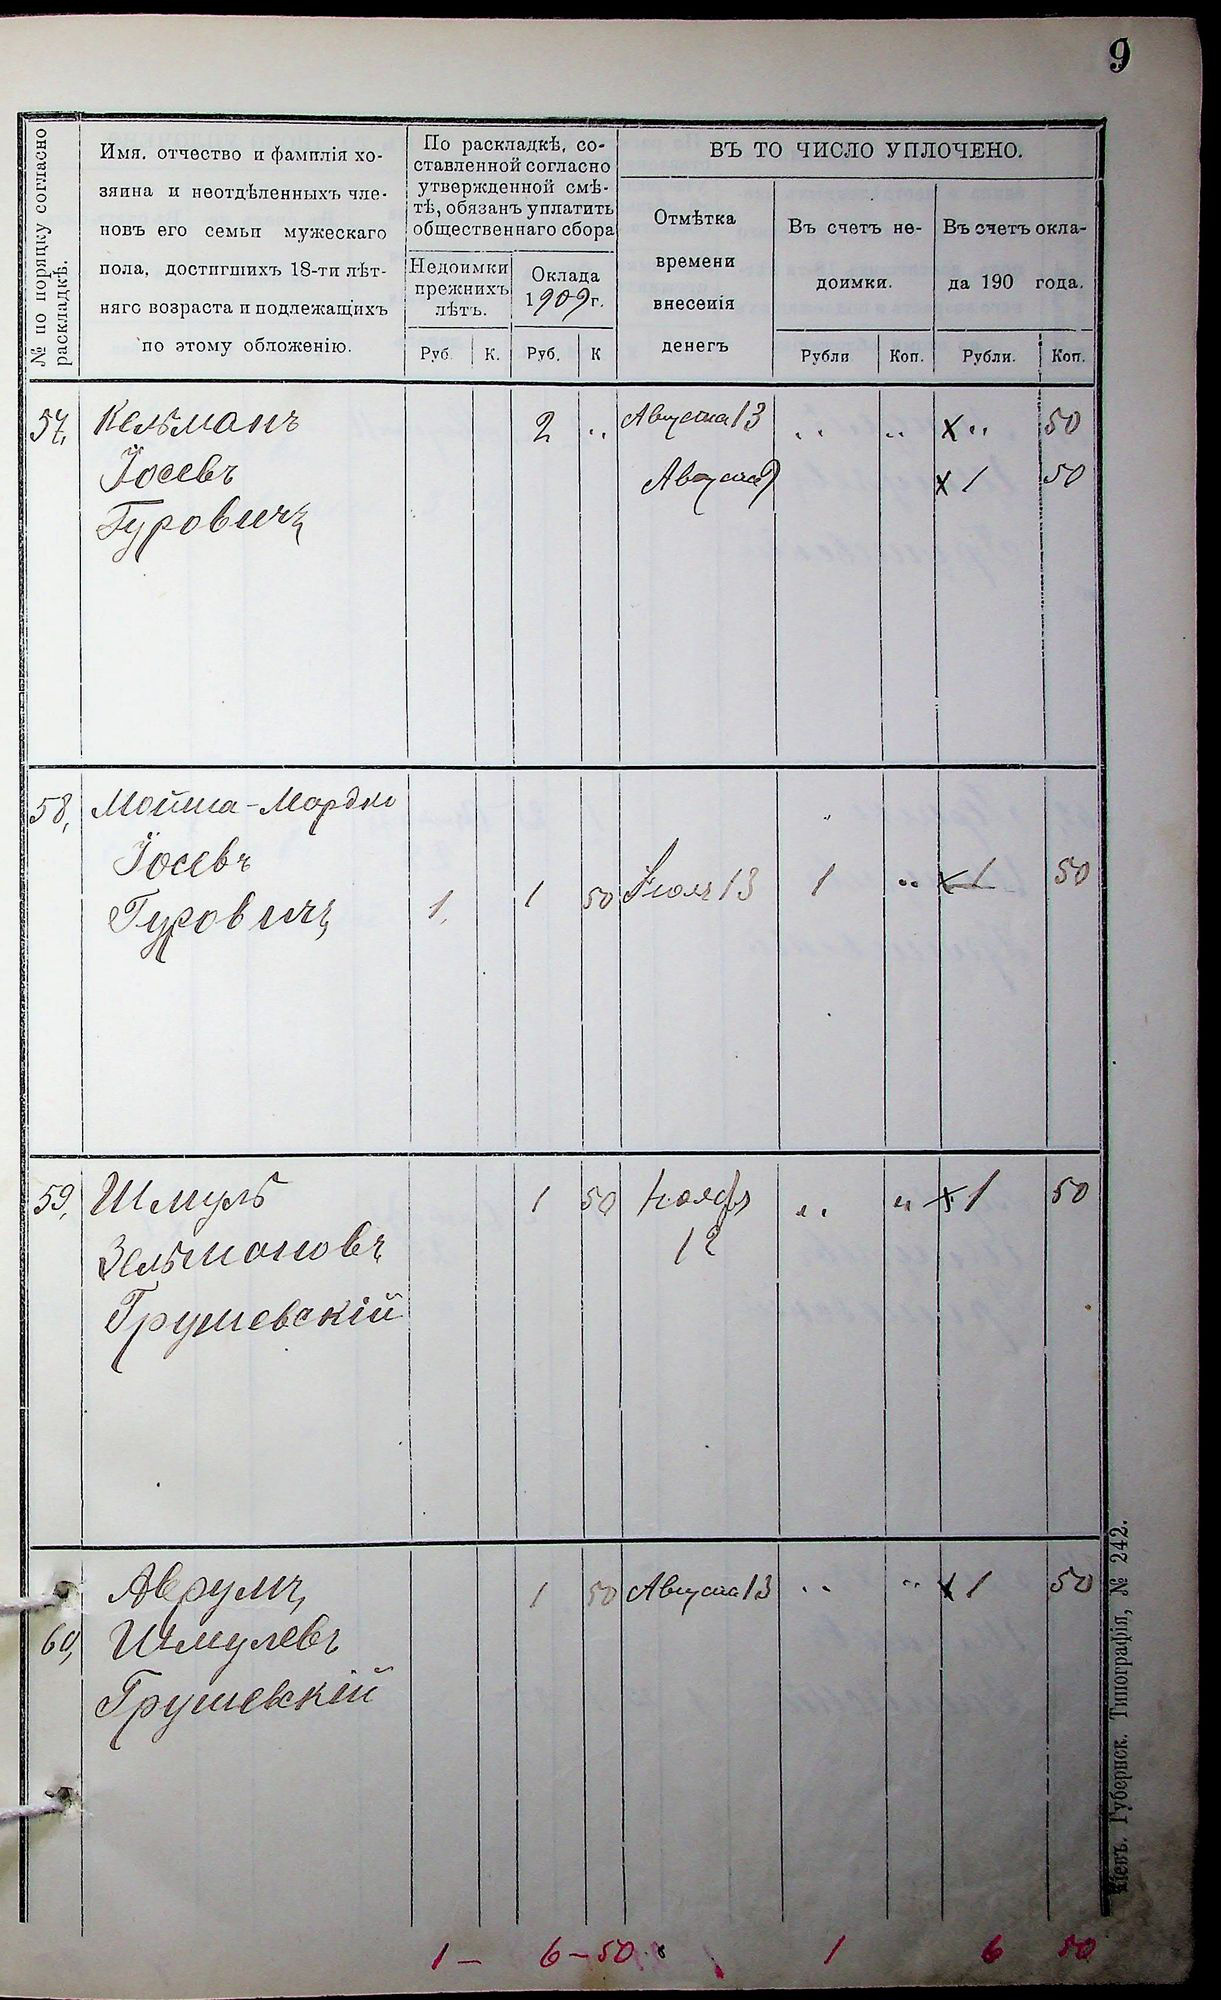 9
№ по порядку согласно раскладкѣ.
Имя, отчество и фамилія хо-
зяина и неотдѣленныхъ чле-
новъ его семьи мужескаго
пола, достигшихъ 18-ти лѣт-
няго возраста и подлежащихъ
по этому обложенію.
По раскладкѣ, со-
ставленной согласно
утвержденной смѣ-
тѣ, обязанъ уплатить
общественнаго сбора
Недоимки
прежнихъ
лѣтъ.
Оклада
1909 г.
Руб. К. Руб. К
ВЪ ТО ЧИСЛО УПЛОЧЕНО.
Отмѣтка
времени
внесенія
денегъ
Въ счетъ не-
доимки.
Рубли Коп.
Въ счетъ окла-
да 190 года.
Рубли. Коп.
57, Кельманъ 2 " Августа 13 " " x " 50
Іосевъ x 1 50
Гуровичъ
58, Мойша-Мордко
Іосевъ
Гуровичъ 1, 1 50 Іюля 13 1 " x 1 50
59, Шмуль 1 50 Ноября " " x 1 50
Зельмановъ 12
Грушевскій
Аврумъ 1 50 Августа 13 " " x 1 50
60, Шмулевъ
Грушевскій
1 – 6 – 50 1 6 50
Кіевъ. Губернск. Типографія, № 242.